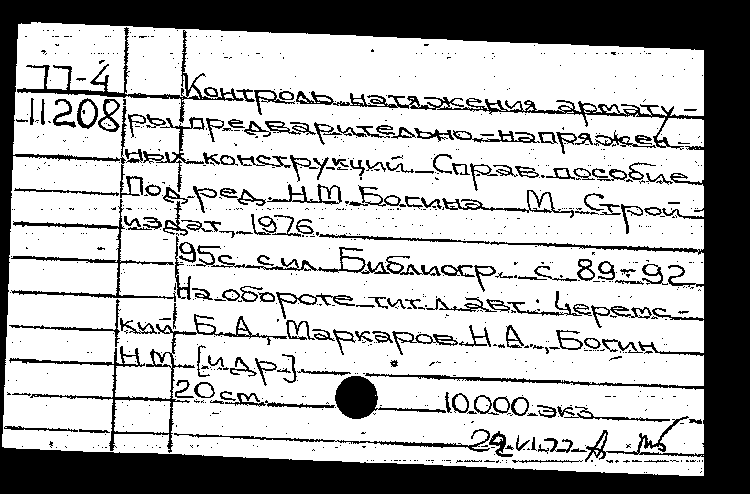 77-4
11208
Контроль натяжения армату-
ры предварительно-напряжен-
ных конструкций. Справ. пособие
Под ред. Н.М. Богина. М., Строй-
издат, 1976.
95с. с ил. Библиогр.: с. 89-92
На обороте тит.л. авт.: Черемс-
кий Б.А., Маркаров Н.А., Богин
Н.М. [и др.]
20 cm. 10.000 экз.
VI.77